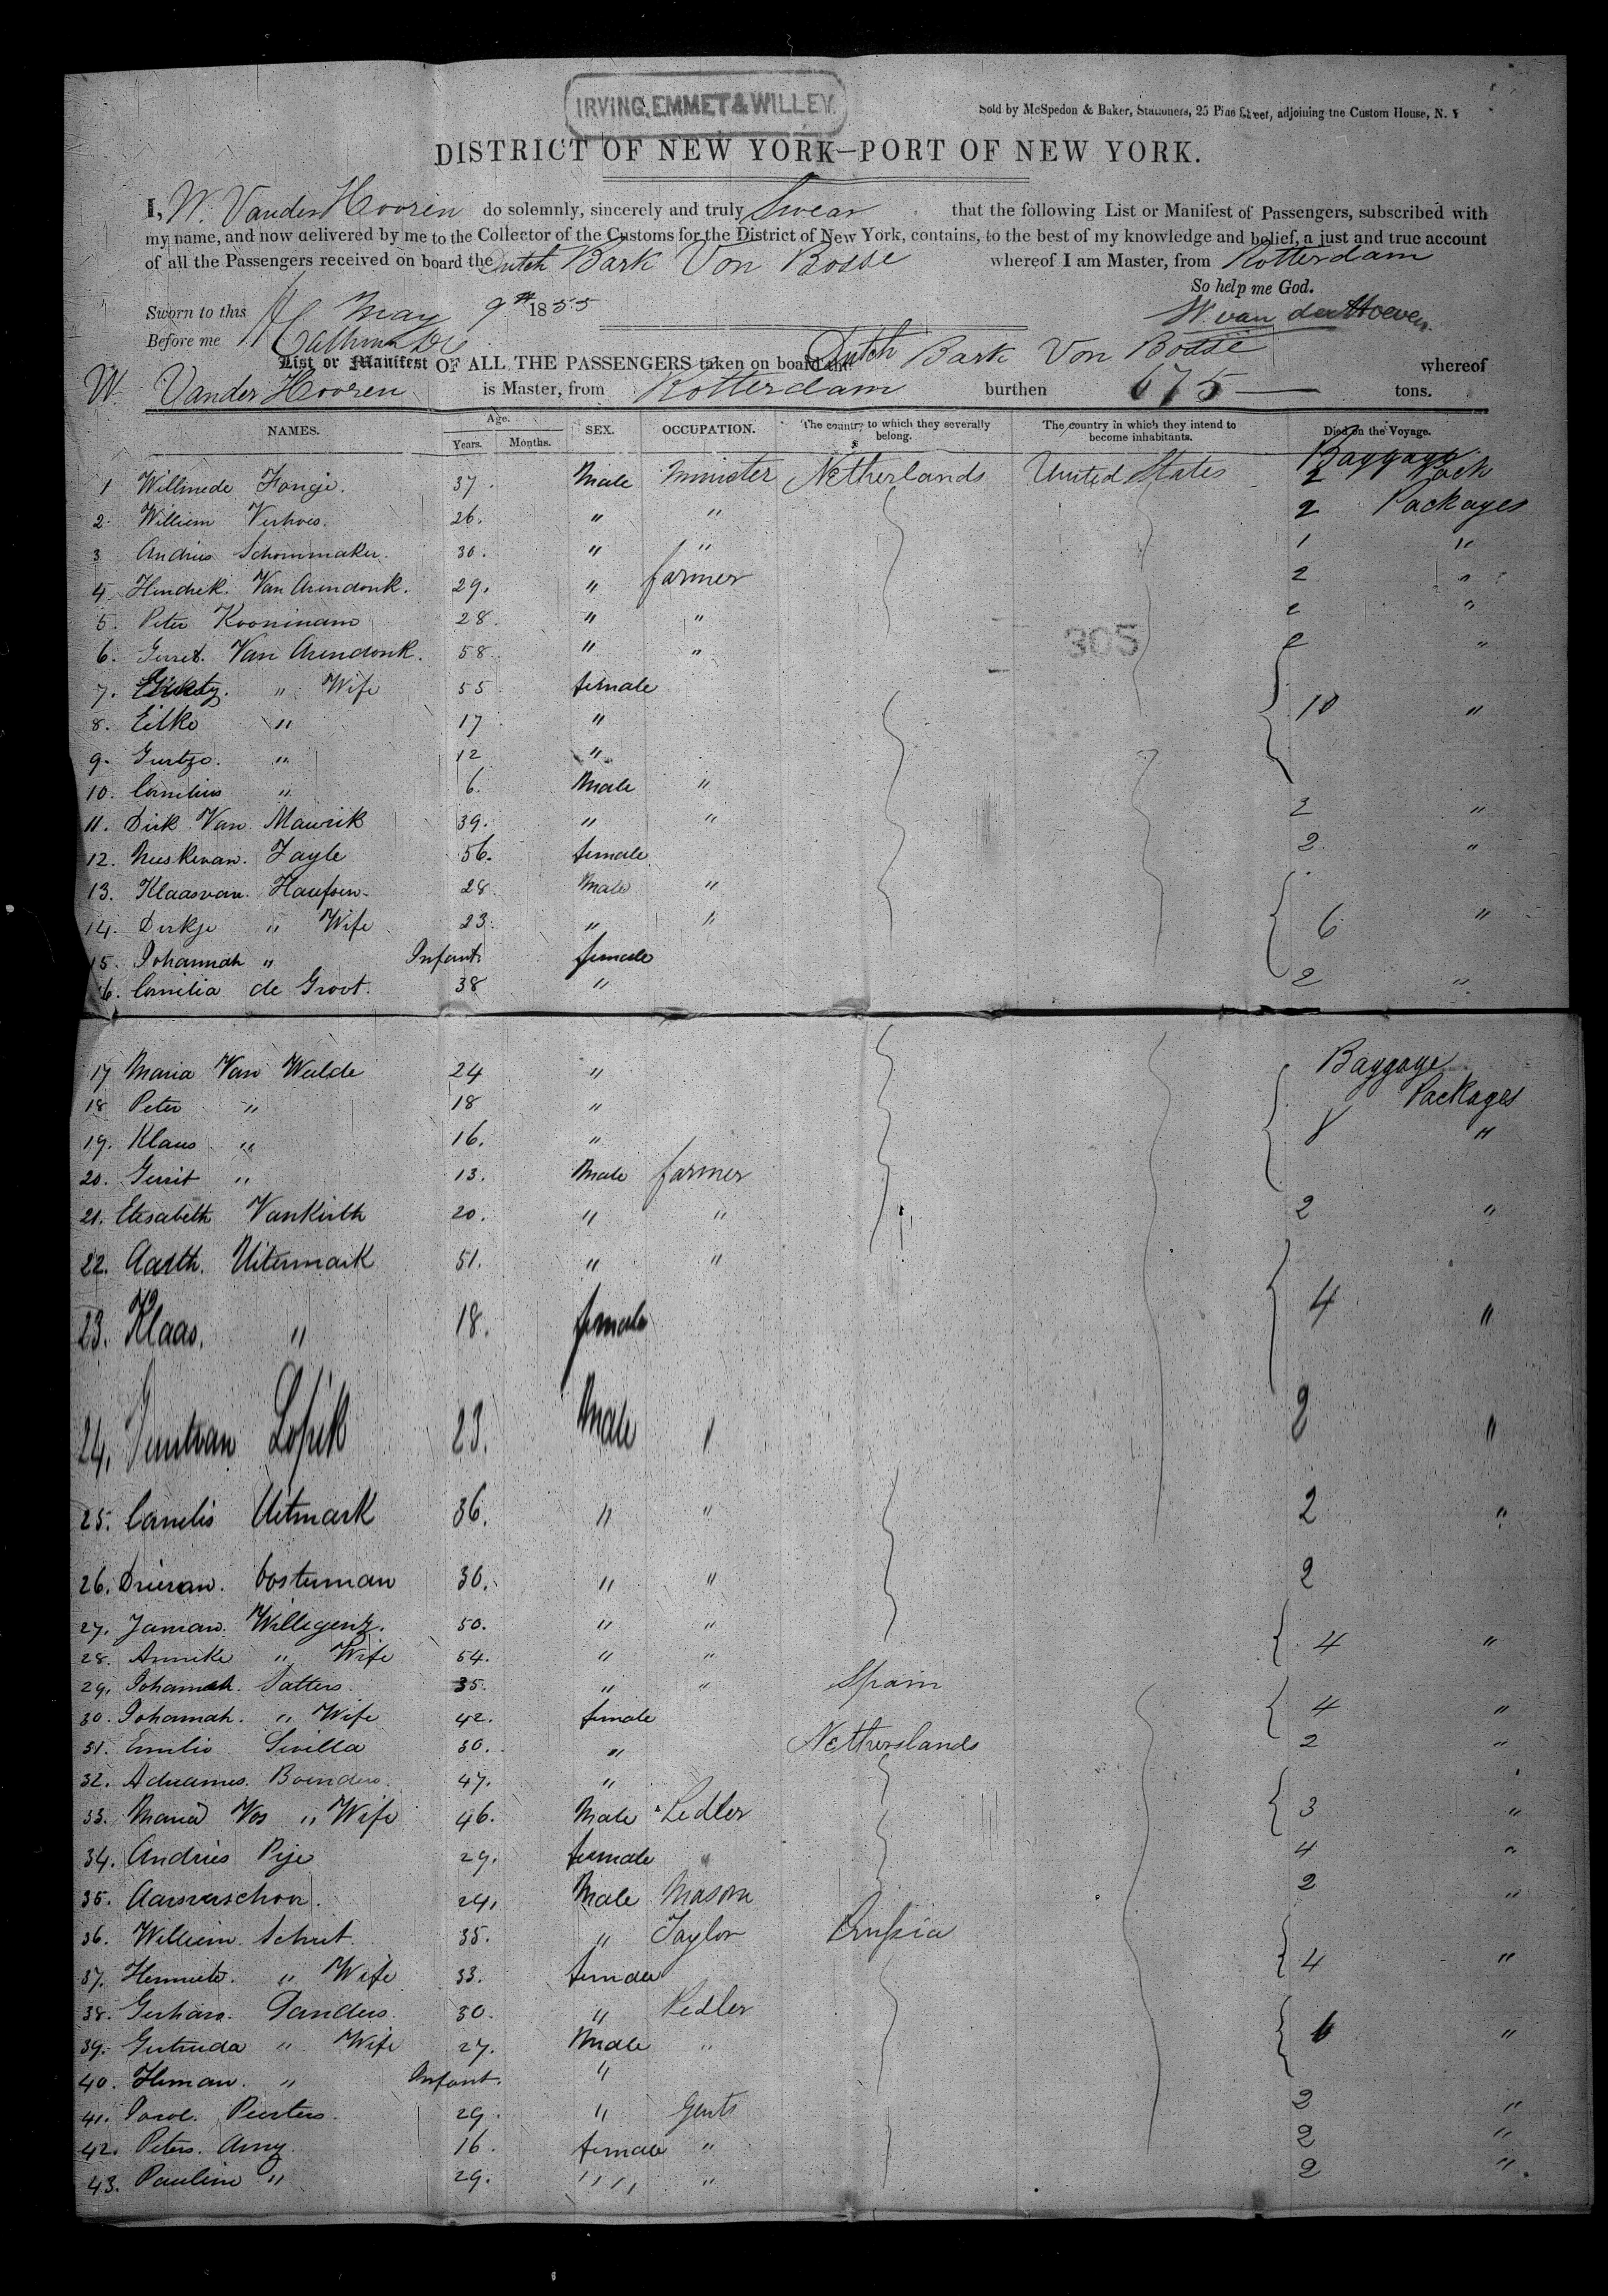 IRVING, EMMET & WILLEY.
Sold by McSpedon & Baker, Stationers, 25 Pine Street, adjoining the Custom House, N. Y
DISTRICT OF NEW YORK—PORT OF NEW YORK.
I, W. Vander Hooren do solemnly, sincerely and truly Swear that the following List or Manifest of Passengers, subscribed with
my name, and now delivered by me to the Collector of the Customs for the District of New York, contains, to the best of my knowledge and belief, a just and true account
of all the Passengers received on board the Dutch Bark Von Bosse whereof I am Master, from Rotterdam
So help me God.
Sworn to this May 9th 1855
W. van der Hoeven
Before me
List or Manifest OF ALL THE PASSENGERS taken on board the Dutch Bark Von Bosse whereof
W. Vander Hooren is Master, from Rotterdam burthen 675 tons.
NAMES. Age. Years. Months. SEX. OCCUPATION. The country to which they severally belong. The country in which they intend to become inhabitants. Died on the Voyage.
Baggage
1 Willmede Fonge. 37. Male Minister Netherlands United States 2
2. Williem Verhoes. 26. " " 2 Packages
3 Andries Schommaker. 30. " " 1 "
4. Hendrik. Van Arendonk. 29. " farmer 2 "
5. Peter Kooninam 28. " " 2 "
305
6. Gerret. Van Arendonk. 58 " " 2 "
7. " Wife 55 female
8. Eilke " 17 " 10 "
9. Gurtzo. " 12 "
10. Cornelius " 6. Male "
11. Dirk Van Maurik 39. " " 2 "
12. Neeskevan. Zayle 56. female 2 "
13. Klaasvan. Haufsen. 28. Male "
14. Dirkje " Wife 23. " " 6 "
15. Johannah " Infant. female
16. Cornelia de Groot. 38 " 2 "
17 Maria Van Walde 24 " Baggage
18 Peter " 18 " Packages
19. Klaus " 16. " 8 "
20. Gerrit " 13. Male farmer
21. Elesabeth VanKerth 20. " " 2 "
22. Aarth. Uitermark 51. " "
23. Klaas. " 18. female 4 "
24. Lopik 23. Male " 2 "
25. Cornelis Uitmark 36. " " 2 "
26. Driesan. Oosterman 30. " " 2
27. Janvan. Willegenz. 50. " "
28. Anneke " Wife 54. " " 4 "
29. Johannah. Satters. 35. " " Spain
30. Johannah. " Wife 42. female 4 "
31. Emilio Sivilla 30. " Netherslands 2 "
32. Adrianus. Boenders. 47. "
33. Maria Vos " Wife 46. Male Pedler 3 "
34. Andries Pije 29. female " 4 "
35. Aarsverschoor. 24. Male Mason 2 "
36. Williem. Schut. 35. " Taylor Prussia
37. " Wife 33. female 4 "
38. Gerhars. Danders. 30. " Pedler
39. Gertruda " Wife 27. Male " 6 "
40. Herman. " Infant. "
41. Peerters. 29. " Gents 2 "
42. Peters. Amy. 16. female " 2 "
43. Pauline " 29. " " " 2 "